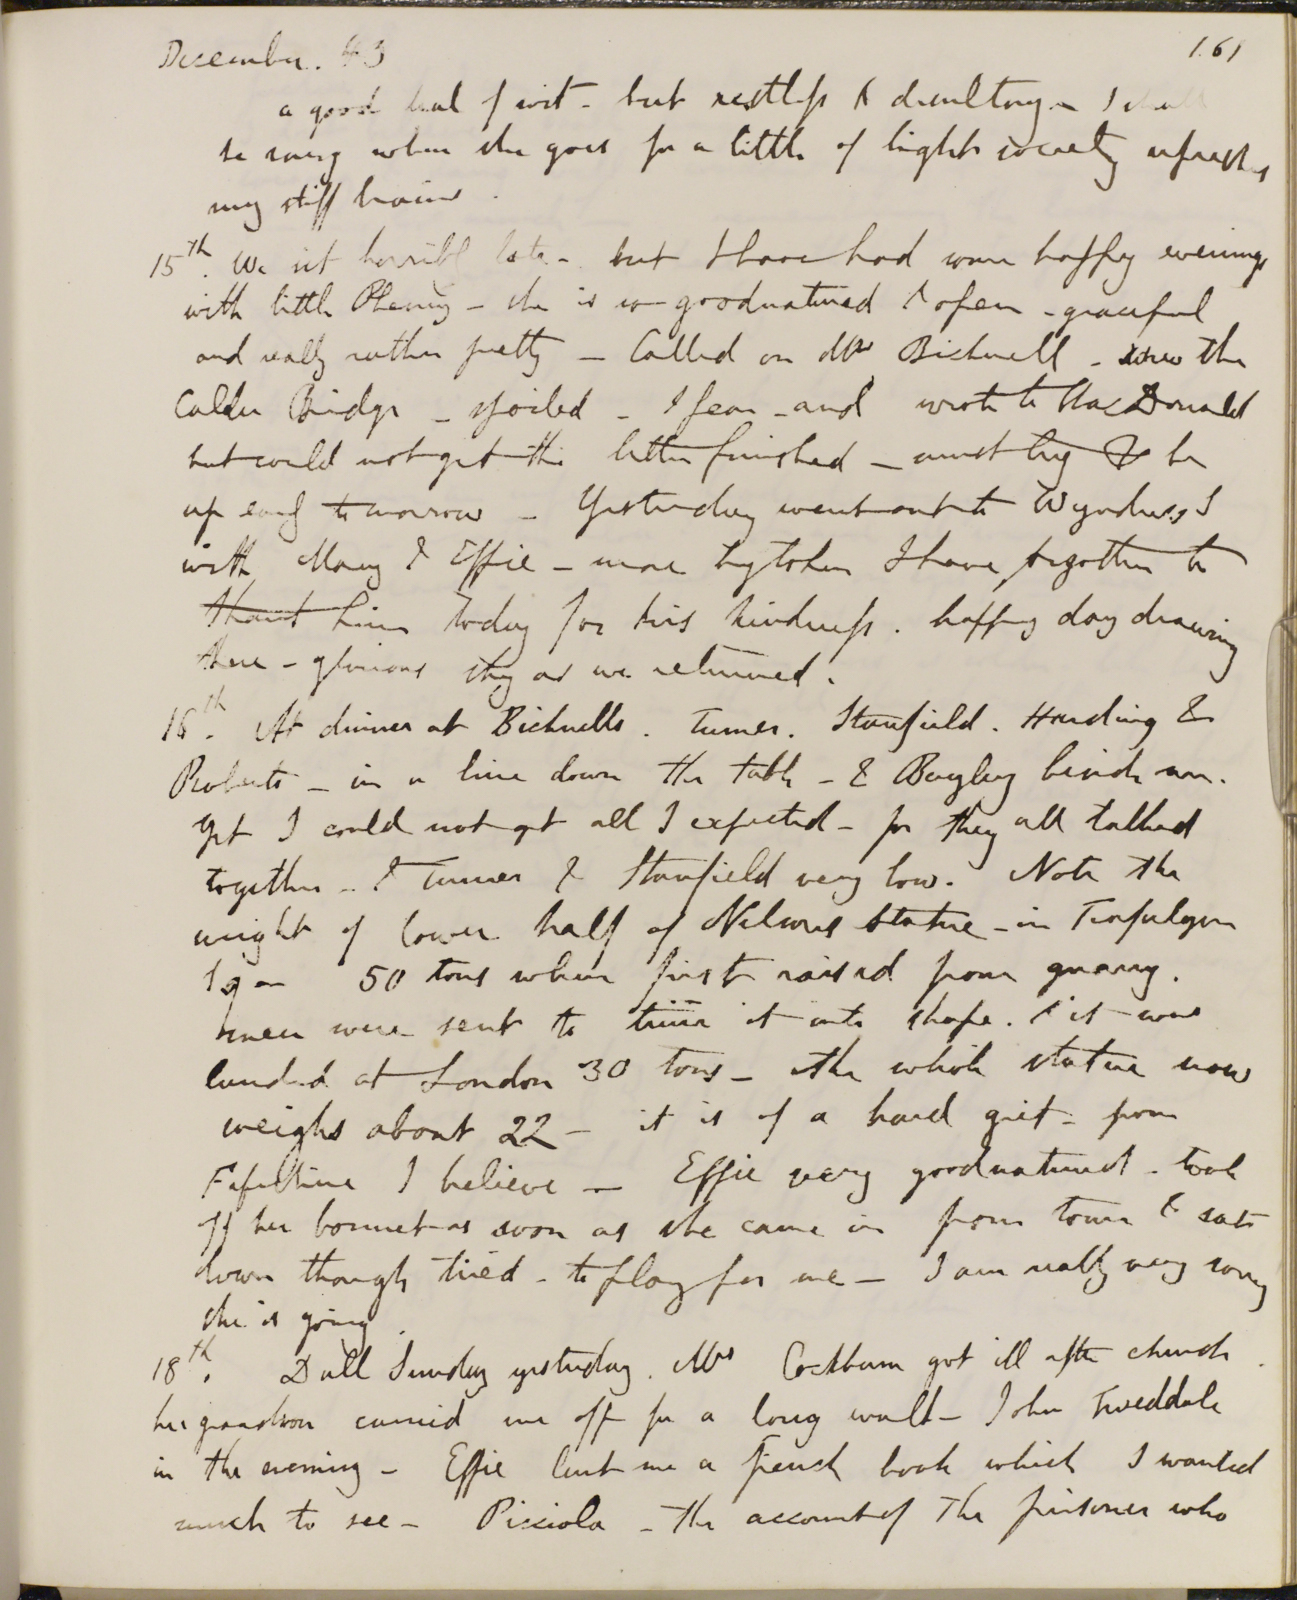 December. 43 161
a good deal of wit - but restless & desultory - I shall
be sorry when she goes for a little of light society refreshes
my stiff brains.
15th. We sit horribly late - but I have had some happy evenings
with little Phemy - she is so goodnatured & open - graceful
and really rather pretty - Called on Mrs Bicknell - saw the
Calder Bridge - spoiled - I fear - and wrote to MacDonald
but could not get the letter finished - must try & be
up early tomorrow - Yesterday went out to Wyndus's
with Mary & Effie - more bytoken I have forgotten to
thank him today for his kindness. happy day drawing
there - glorious sky as we returned.
16th. At dinner at Bicknells. Turner. Stanfield. Harding &
Roberts - in a line down the table - & Bayley beside me.
Yet I could not get all I expected - for they all talked
together - & Turner & Stanfield very low. Note the
weight of lower half of Nelsons statue - in Trafalgar
Sq - 50 tons when first raised from quarry.
men were sent to trim it into shape. & it was
landed at London 30 tons - the whole statue now
weighs about 22 - it is of a hard grit - from
Fifeshire I believe - Effie very goodnatured - took
off her bonnet as soon as she came in from town & sat
down though tired - to play for me - I am really very sorry
she is going.
18th. Dull Sunday yesterday. Mrs Cockburn got ill after church.
her grandson carried me off for a long walk - John Tweddale
in the evening - Effie lent me a French book which I wanted
much to see - Picciola - the account of the prisoner who